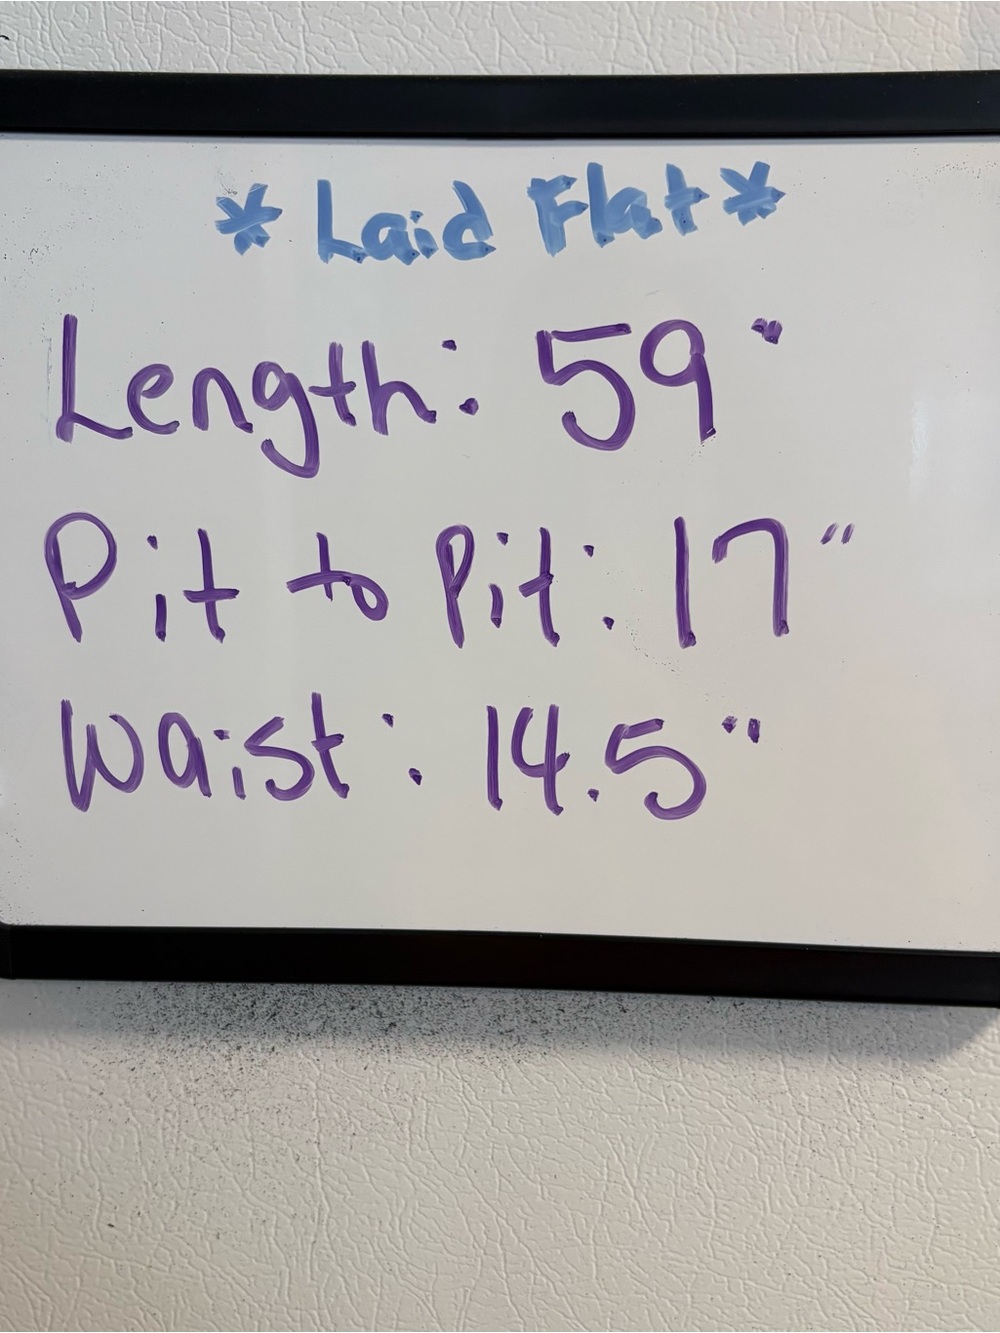 *Laid Flat*
Length: 59"
Pit to Pit: 17"
Waist: 14.5"